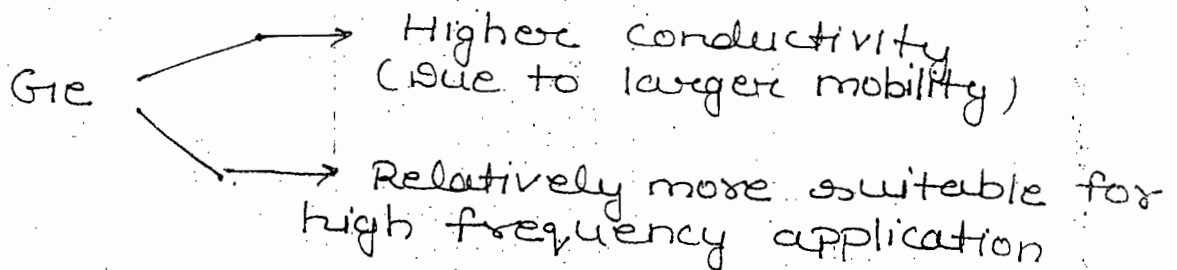 Higher conductivity
(Due to larger mobility)
Ge
Relatively more suitable for
high frequency application